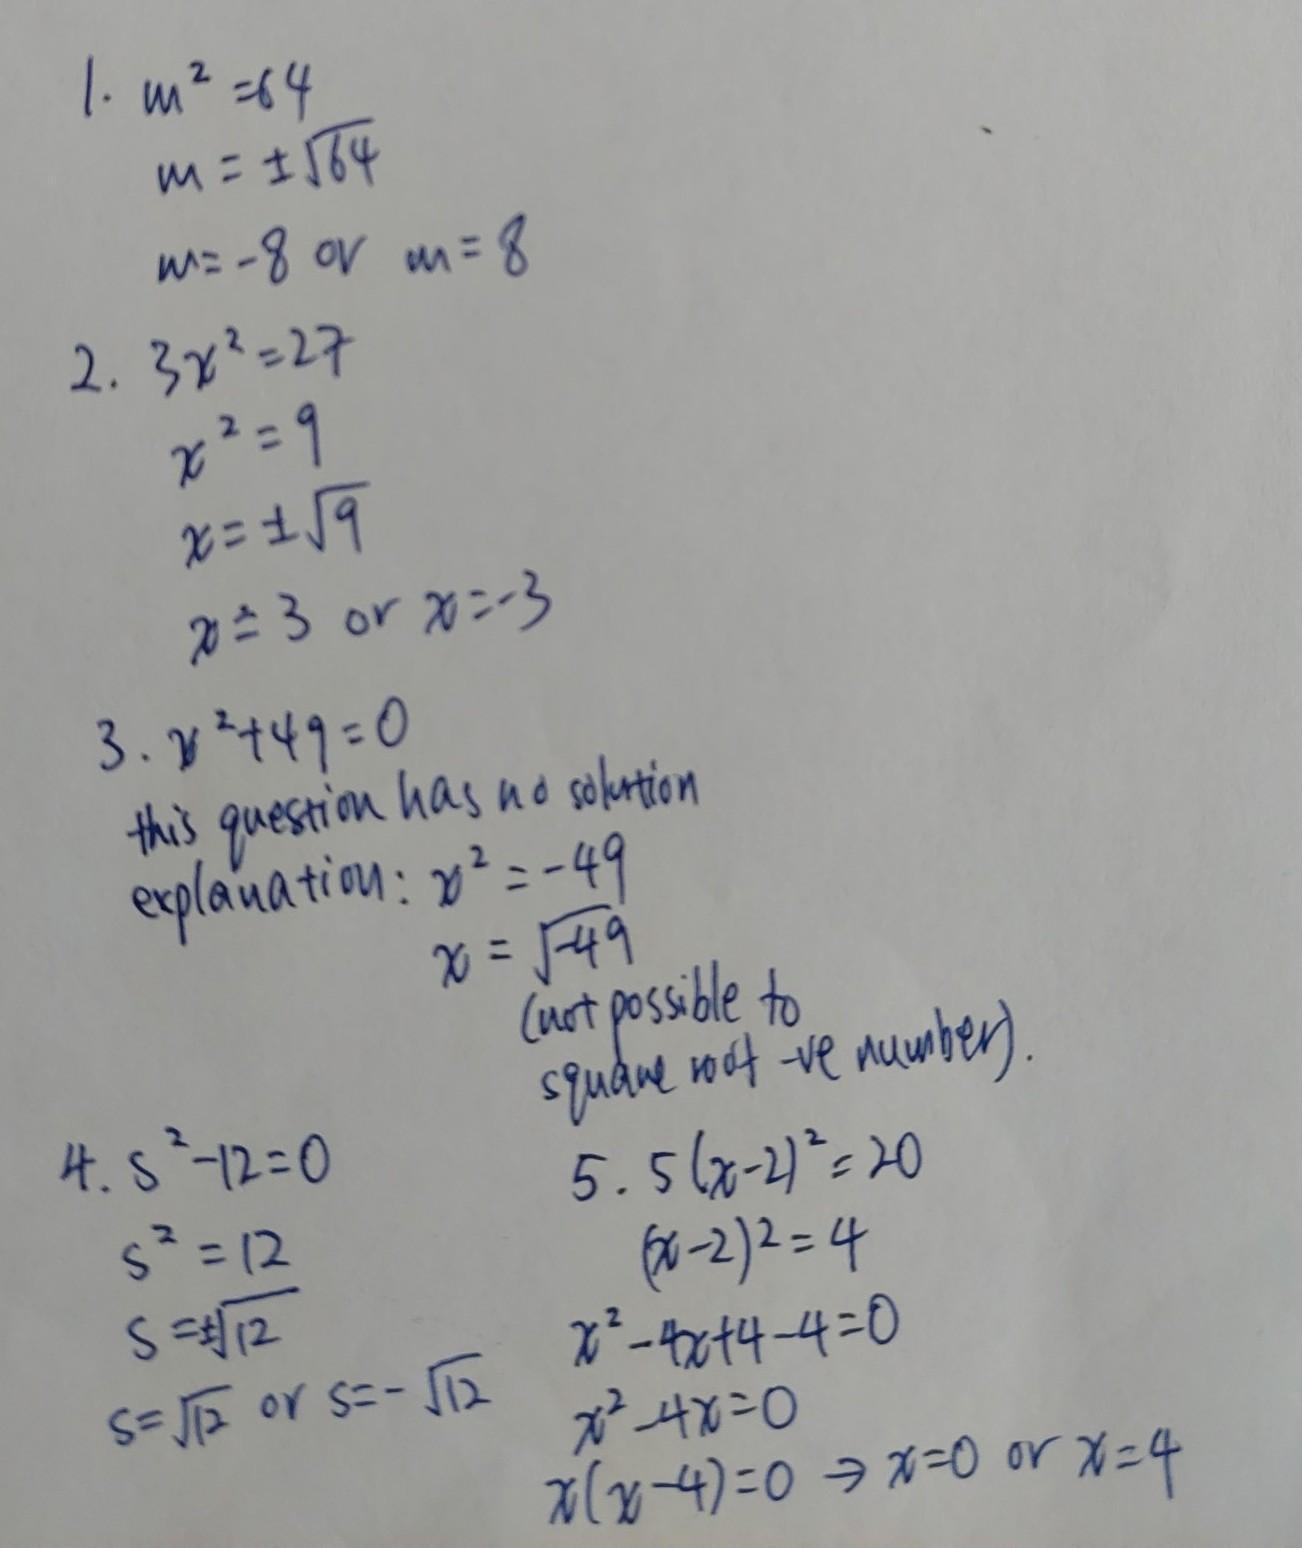 1. m² = 64
m = ±√64
m = -8 or m = 8
2. 3x² = 27
x² = 9
x = ±√9
x = 3 or x = -3
3. x² + 49 = 0
this question has no solution
explanation: x² = -49
x = √-49
(not possible to
square root -ve number).
4. s² - 12 = 0
s² = 12
s = ±√12
s = √12 or s = -√12
5. 5(x-2)² = 20
(x-2)² = 4
x² - 4x + 4 - 4 = 0
x² - 4x = 0
x(x-4) = 0 → x = 0 or x = 4